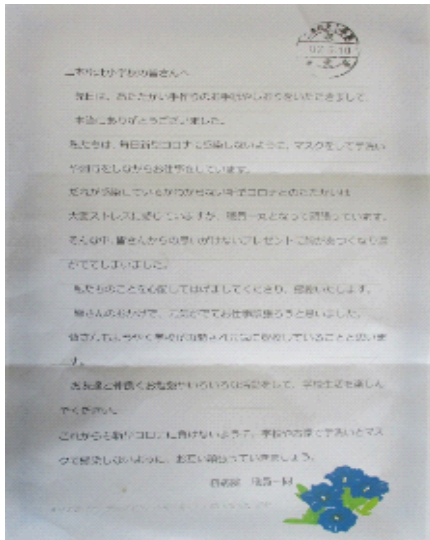 二本松北小学校の皆さんへ
先日は、あたたかい手作りのお手紙やしおりをいただきまして、
本当にありがとうございました。
私たちは、毎日新型コロナに感染しないように、マスクをして手洗い
や消毒をしながらお仕事をしています。
だれが感染しているかわからない新型コロナとのたたかいは
大変ストレスに感じていますが、職員一丸となって頑張っています。
そんな中、皆さんからの思いがけないプレゼントに胸があつくなり涙
がでてしまいました。
私たちのことを心配してはげましてくださり、感謝いたします。
皆さんのおかげで、元気がでてお仕事頑張ろうと思いました。
皆さんもようやく学校が再開され元気に登校していることと思いま
す。
お友達と仲良くお勉強やいろいろな活動をして、学校生活を楽しん
でください。
これからも新型コロナに負けないように、学校やお家で手洗いとマス
クで感染しないように、お互い頑張っていきましょう。
職員一同